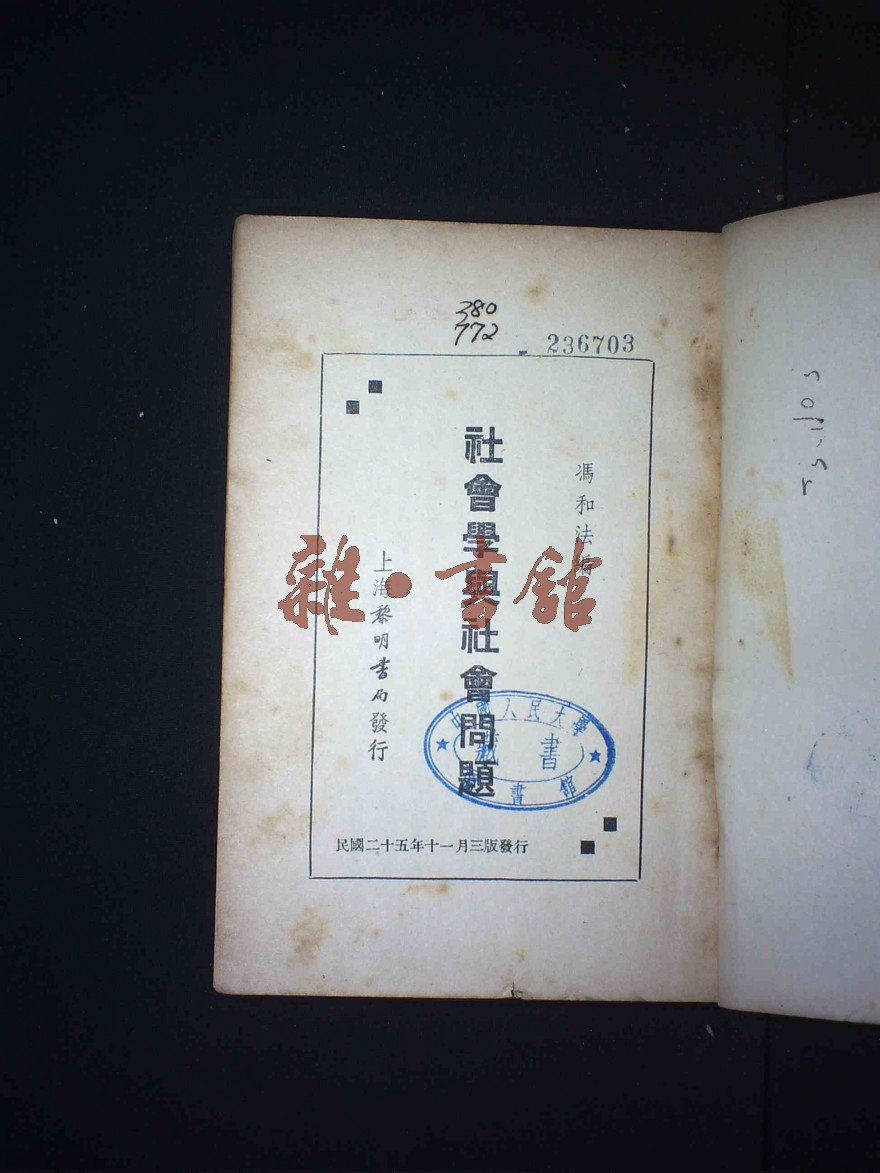 380
772
236703
馮和法編
社會學與社會問題
上海黎明書局發行
民國二十五年十一月三版發行
中國人民大學
藏書
圖書館
雜·書館